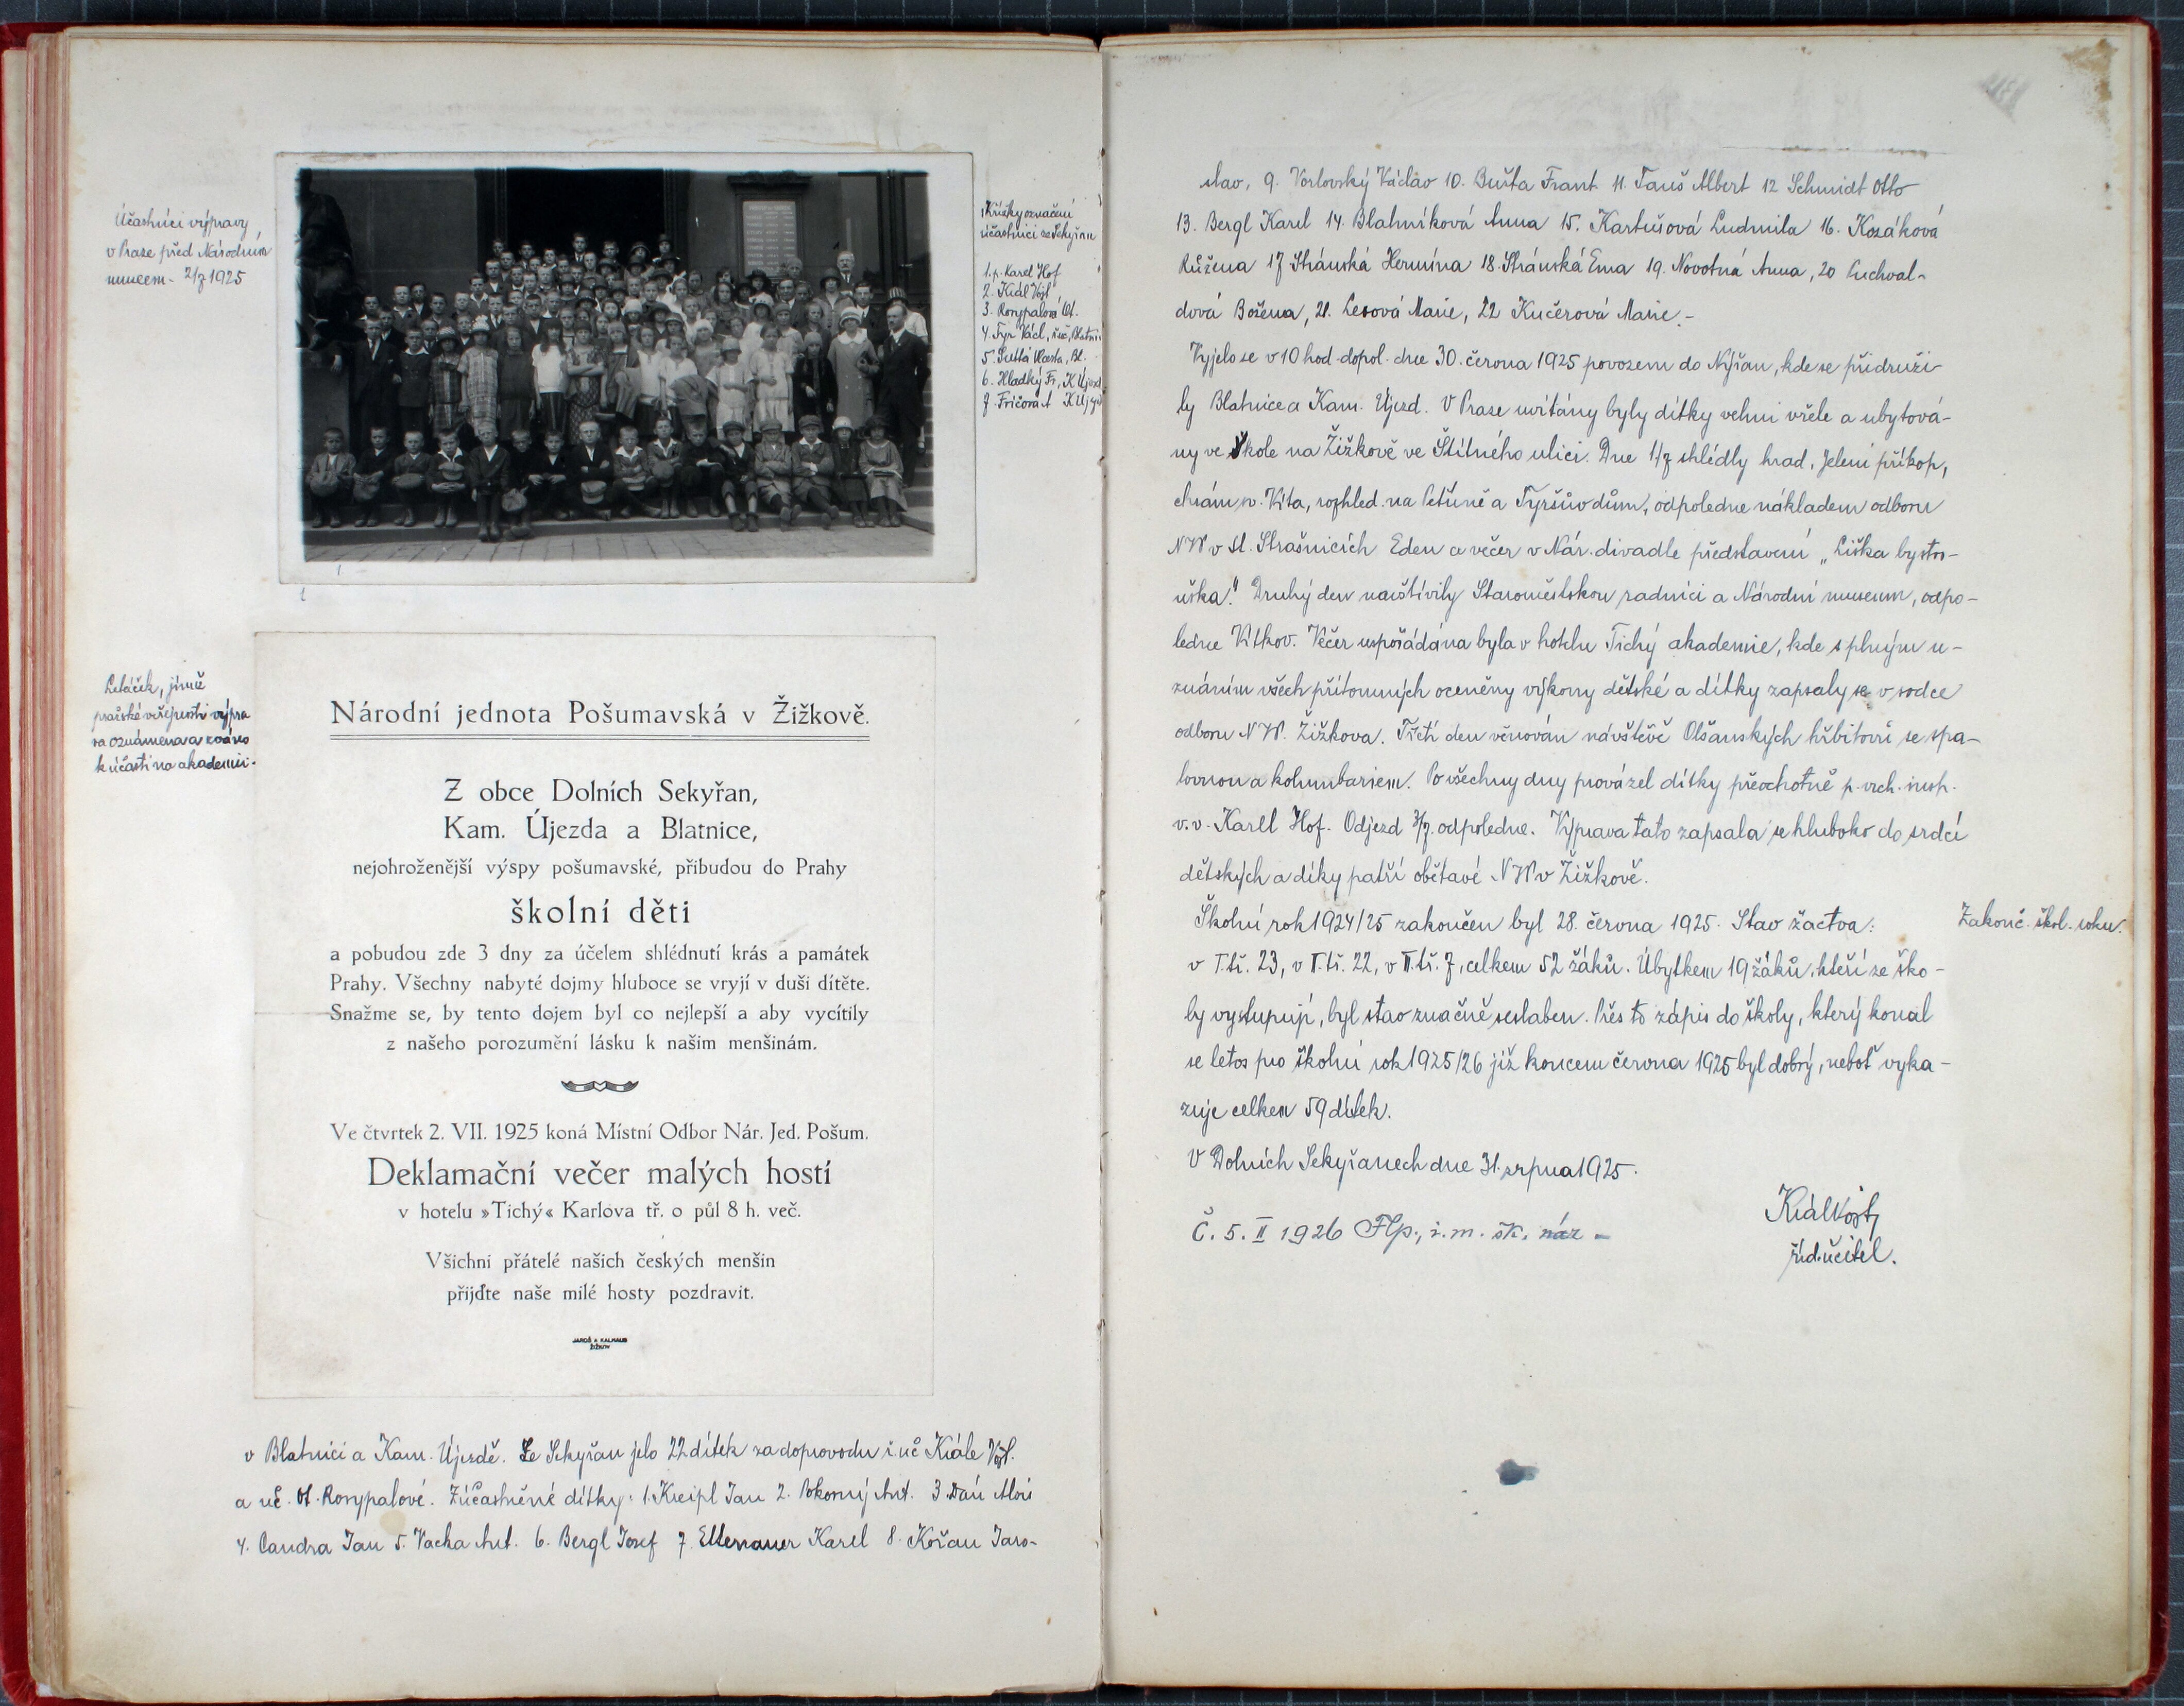 Účastníci výpravy
v Praze před Národním
museem - 2/7 1925
Křížky označeni
účastníci ze Sekyřan
1. p. Karel Hof
2. Král Vojt
3. Rosypalová Ot.
4. Fyr Václ., Blatnic
5. Sutta Vlasta, Bl.
6. Hladký Fr., K. Újezd
7. Fričová A K. Újezd
Letáček, jímž
pražské veřejnosti výpra
va oznámena a zváno
k účasti na akademii.
Národní jednota Pošumavská v Žižkově.
Z obce Dolních Sekyřan,
Kam. Újezda a Blatnice,
nejohroženější výspy pošumavské, přibudou do Prahy
školní děti
a pobudou zde 3 dny za účelem shlédnutí krás a památek
Prahy. Všechny nabyté dojmy hluboce se vryjí v duši dítěte.
Snažme se, by tento dojem byl co nejlepší a aby vycítily
z našeho porozumění lásku k našim menšinám.
Ve čtvrtek 2. VII. 1925 koná Místní Odbor Nár. Jed. Pošum.
Deklamační večer malých hostí
v hotelu »Tichý« Karlova tř. o půl 8 h. več.
Všichni přátelé našich českých menšin
přijďte naše milé hosty pozdravit.
JAROŠ A KALHAUS
ŽIŽKOV
v Blatnici a Kam. Újezdě. Ze Sekyřan jelo 22 dítek za doprovodu ř. uč Krále Vojt.
a uč. Ot. Rosypalové. Zúčastněné dítky: 1. Kreipl Jan 2. Pokorný Ant. 3. Daň Alois
4. Candra Jan 5. Vacka Ant. 6. Bergl Josef 7. Ellenauer Karel 8. Kořan Jaro-
slav, 9. Vorlovský Václav 10. Bušta Frant 11. Tauš Albert 12 Schmidt Otto
13. Bergl Karel 14. Blahníková Anna 15. Kartušová Ludmila 16. Kozáková
Růžena 17 Stránská Hermína 18. Stránská Ema 19. Novotná Anna, 20 Cuchval-
dová Božena, 21. Lesová Marie, 22 Kučerová Marie.-
Vyjelo se v 10 hod. dopol. dne 30. června 1925 povozem do Nýřan, kde se přidruži-
ly Blatnice a Kam. Újezd. V Praze uvítány byly dítky velmi vřele a ubytová-
ny ve škole na Žižkově ve Štítného ulici. Dne 1/7 shlédly hrad, Jelení příkop,
chrám sv. Víta, rozhled. na Petříně a Tyršův dům, odpoledne nákladem odboru
NJP v St. Strašnicích Eden a večer v Nár. divadle představení „Liška bystro-
uška." Druhý den navštívily Staroměstskou radnici a Národní museum, odpo-
ledne Vítkov. Večer uspořádána byla v hotelu Tichý akademie, kde s plným u-
znáním všech přítomných oceněny výkony dětské a dítky zapsaly se v srdce
odboru NJP. Žižkova. Třetí den věnován návštěvě Olšanských hřbitovů se spa-
lovnou a kolumbariem. Po všechny dny provázel dítky přeochotně p. vrch. insp.
v. v. Karel Hof. Odjezd 3/7. odpoledne. Výprava tato zapsala se hluboko do srdcí
dětských a díky patří obětavé NJP v Žižkově.
Školní rok 1924/25 zakončen byl 28. června 1925. Stav žactva:
Zakonč. škol. roku.
v I. tř. 23, v II. tř. 22, v III. tř. 7, celkem 52 žáků. Úbytkem 19 žáků, kteří ze ško-
ly vystupují, byl stav značně seslaben. Přes to zápis do školy, který konal
se letos pro školní rok 1925/26 již koncem června 1925 byl dobrý, neboť vyka-
zuje celkem 59 dítek.
V Dolních Sekyřanech dne 31. srpna 1925.
Král Vojt,
říd. učitel.
Č. 5. II 1926 i. m. šk. náz -